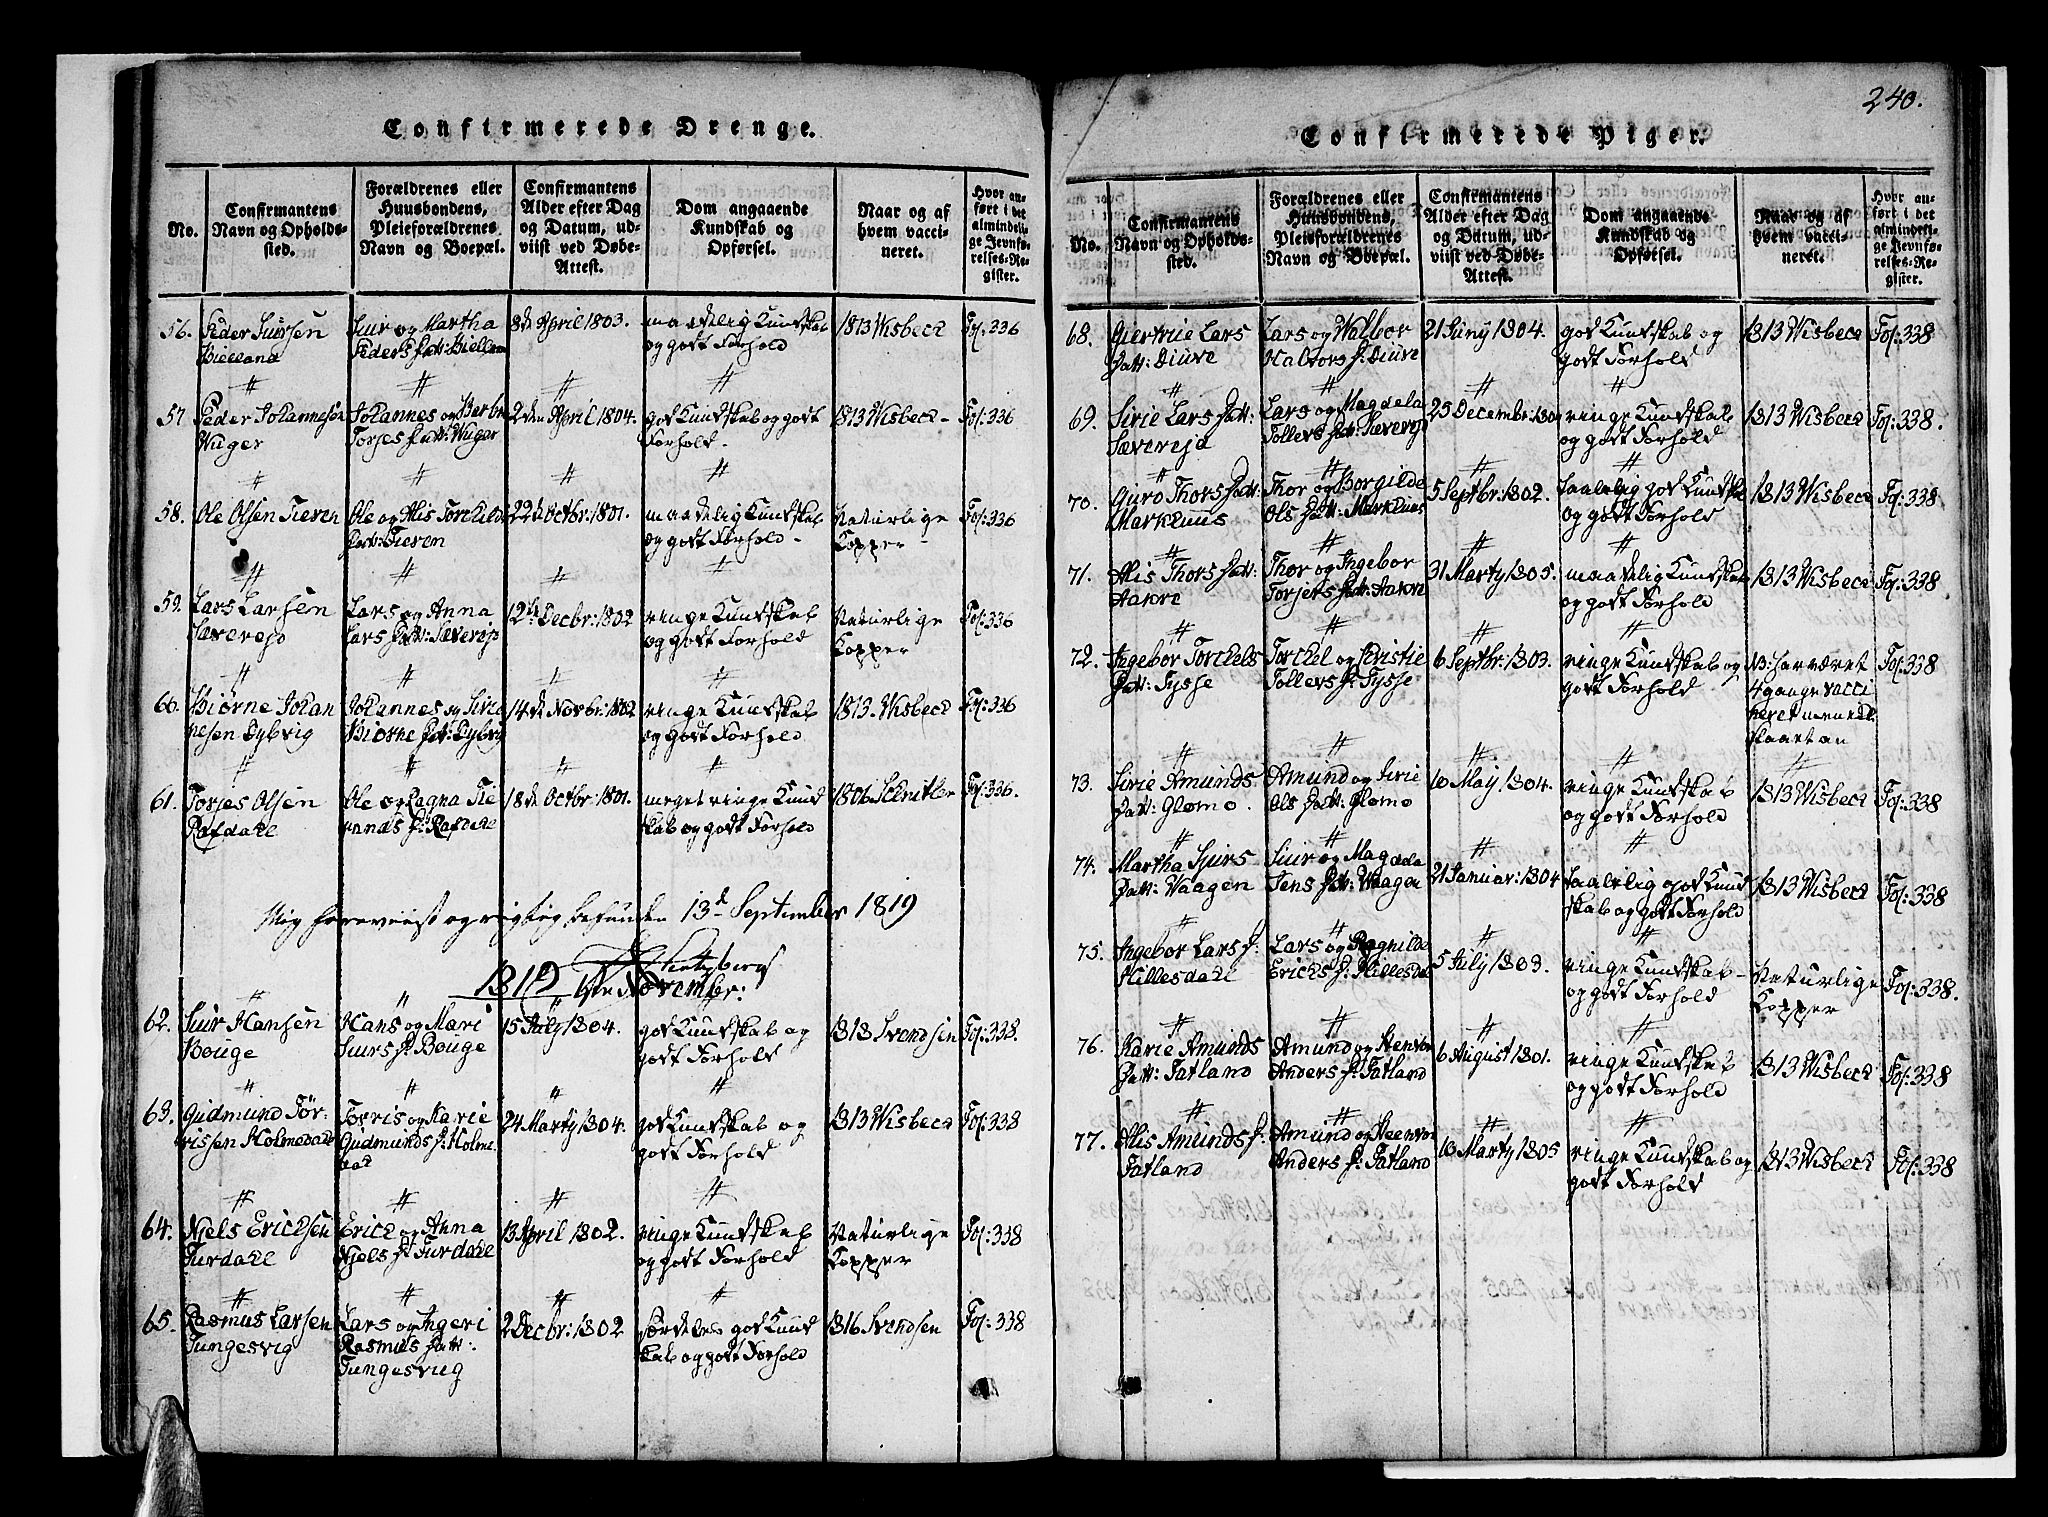 Confirmerede Drenge.
No.
Confirmantens
Navn og Opholds-
sted.
Forældrenes eller
Huusbondens,
Pleieforældrenes
Navn og Boepæl.
Confirmantens
Alder efter Dag
og Datum, ud-
viist ved Døbe-
Attest.
Dom angaaende
Kundskab og
Opførsel.
Naar og af
hvem vacci-
neret.
Hvor an-
ført i det
almindeli-
ge Jevnfø-
relses-Re-
gister.
56. Peder Siursen
Hielland
Siur og Martha
Peders Datt:
8de April 1803.
maadelig Kundskab
og godt Forhold
1813 Wisbech
Fol: 336
57. Peder Johannesen
Wuger
Johannes og Barbro
Torjes Datt: Wuger
2den April 1804.
god Kundskab og godt
Forhold.
1813 Wisbech
Fol: 336
58. Ole Olsen Tieren
Ole og Alis Torchilds
Datt: Tieren
22de Octbr: 1801.
maadelig Kundskab
og godt Forhold
Naturlige
Kopper
Fol: 336
59. Lars Larsen
Sæverejd
Lars og Anna
Lars Datt: Sæverejd
12te Decbr: 1802
ringe Kundskab
og godt Forhold
Naturlige
Kopper
Fol: 336
60. Biørne Johan
nesen Dybvig
Johannes og Sirie
Biørne Datt: Dybvig
14de Novbr: 1802
ringe Kundskab
og godt Forhold
1813 Wisbech
Fol: 336
61. Torjes Olsen
Rafdahl
Ole og Ragna
18de Octbr: 1801.
meget ringe Kund
skab og godt Forhold
1806 Schnitler
Fol: 336.
Mig foreviist og rigtig befunden 13d September 1819
1819 November:
62. Siur Hansen
Bouge
Hans og Mari
Siurs D: Bouge
15 July 1804.
god Kundskab og
godt Forhold
1818 Svendsen
Fol: 338.
63. Gudmund Tør-
risen Holmedahl
Torris og Karie
Gudmunds D: Holme
dal
24 Marty 1804.
god Kundskab og
godt Forhold
1813 Wisbech
Fol: 338
64. Njels Erichsen
Furdahl
Erich og Anna
Njels D: Furdahl
13 April 1802.
ringe Kundskab
og godt Forhold
Naturlige
Kopper
Fol: 338
65. Rasmus Larsen
Tungesvig
Lars og Angeri
Rasmus Datt:
Tungesvig
2 Decbr: 1802
særdeles god Kund
skab og godt Forhold
1816 Svendsen
Fol: 338
240.
Confirmerede Piger.
No.
Confirmantens
Navn og Opholds-
sted.
Forældrenes eller
Huusbondens,
Pleieforældrenes
Navn og Boepæl.
Confirmantens
Alder efter Dag
og Datum, ud-
viist ved Døbe-
Attest.
Dom angaaende
Kundskab og
Opførsel.
Naar og af
hvem vacci-
neret.
Hvor an-
ført i det
almindeli-
ge Jevnfø-
relses-Re-
gister.
68. Giertrue Lars
Datt: Diuve
Lars og Walbor
Haldors D: Diuve
21 Juny 1804.
god Kundskab og
godt Forhold
1813 Wisbech
Fol: 338
69. Sirie Lars Datt:
Sæverejd
Lars og Magdela
Tollevs Datt: Sæverejd
25 December: 180
ringe Kundskab
og godt Forhold
1813 Wisbech
Fol: 338.
70. Guro Thors Datt:
Markhuus
Thor og Borgilde
Ols Datt: Markhuus
5 Septbr: 1802.
taalelig god Kundskab
og godt Forhold
1813 Wisbech
Fol: 338
71. Alis Thors Datt:
Aakre
Thor og Ingebor
Torjers Datt: Aakre
31 Marty 1805.
maadelig Kundskab
og godt Forhold
1813 Wisbech
Fol: 338
72. Ingebor Torchels
Datt: Sysse
Torchel og Christie
Tollevs D: Sysse
6 Septbr: 1803.
ringe Kundskab og
godt Forhold
NB: har været
4 gange vacci
neret men ikke
slaaet an
Fol: 338
73. Sirie Amunds
Datt: Glomo.
Amund og Sirie
Ols Datt: Glomo
10 May 1804.
ringe Kundskab
og godt Forhold
1813 Wisbech
Fol: 338
74. Martha Sjurs
Datt: Vaagen
Siur og Magdela
Jens Datt: Waagen
21 Januar: 1804
taalelig god Kund
skab og godt Forhold
1813 Wisbech
Fol: 338
75. Ingebor Lars D.
Hillesdahl
Lars og Ragnilde
Erichs D: Hillesdal
5 July 1803.
ringe Kundskab
og godt Forhold
Naturlige
Kopper
Fol: 338.
76. Karie Amunds
Datt: Fatland
Amund og Stenvor
Anders D: Fatland
6 August 1801.
ringe Kundskab
og godt Forhold
1813 Wisbech
Fol: 338
77. Alis Amunds D.
Fatland
Amund og Stenvor
Anders D: Fatland
10 Marty 1805
ringe Kundskab og
godt Forhold
1813 Wisbech
Fol: 338